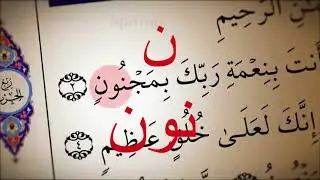 ـنِ الرَّحِيمِ
ن
أَنتَ بِنِعْمَةِ رَبِّكَ بِمَجْنُونٍ ٢
نون
إِنَّكَ لَعَلَىٰ خُلُقٍ عَظِيمٍ ٤
ربع
الحزب